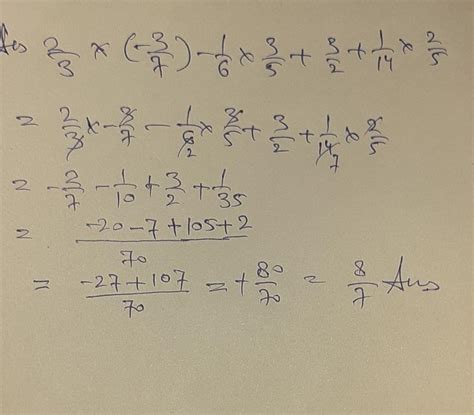 Ans 2/3 × (-3/7) - 1/6 × 3/5 + 3/2 + 1/14 × 2/5
= 2/3 × -3/7 - 1/6 2 × 3/5 + 3/2 + 1/14 7 × 2/5
= -2/7 - 1/10 + 3/2 + 1/35
= -20-7+105+2/70
= -27+107/70 = +80/70 = 8/7 Ans